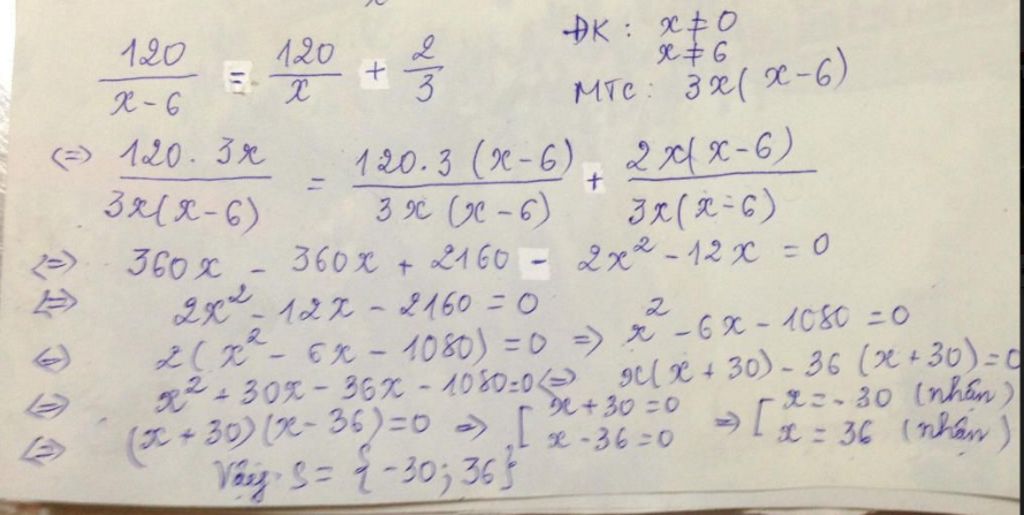 120/(x-6) = 120/x + 2/3 ĐK: x ≠ 0
x ≠ 6
MTC: 3x(x-6)
<=> 120.3x/3x(x-6) = 120.3(x-6)/3x(x-6) + 2x(x-6)/3x(x-6)
<=> 360x - 360x + 2160 - 2x² - 12x = 0
<=> 2x² - 12x - 2160 = 0
<=> 2(x² - 6x - 1080) = 0 => x² - 6x - 1080 = 0
<=> x² + 30x - 36x - 1080 = 0 <=> x(x + 30) - 36(x + 30) = 0
<=> (x + 30)(x - 36) = 0 => [ x + 30 = 0 => [ x = -30 (nhận)
x - 36 = 0 x = 36 (nhận)
Vậy S = {-30; 36}